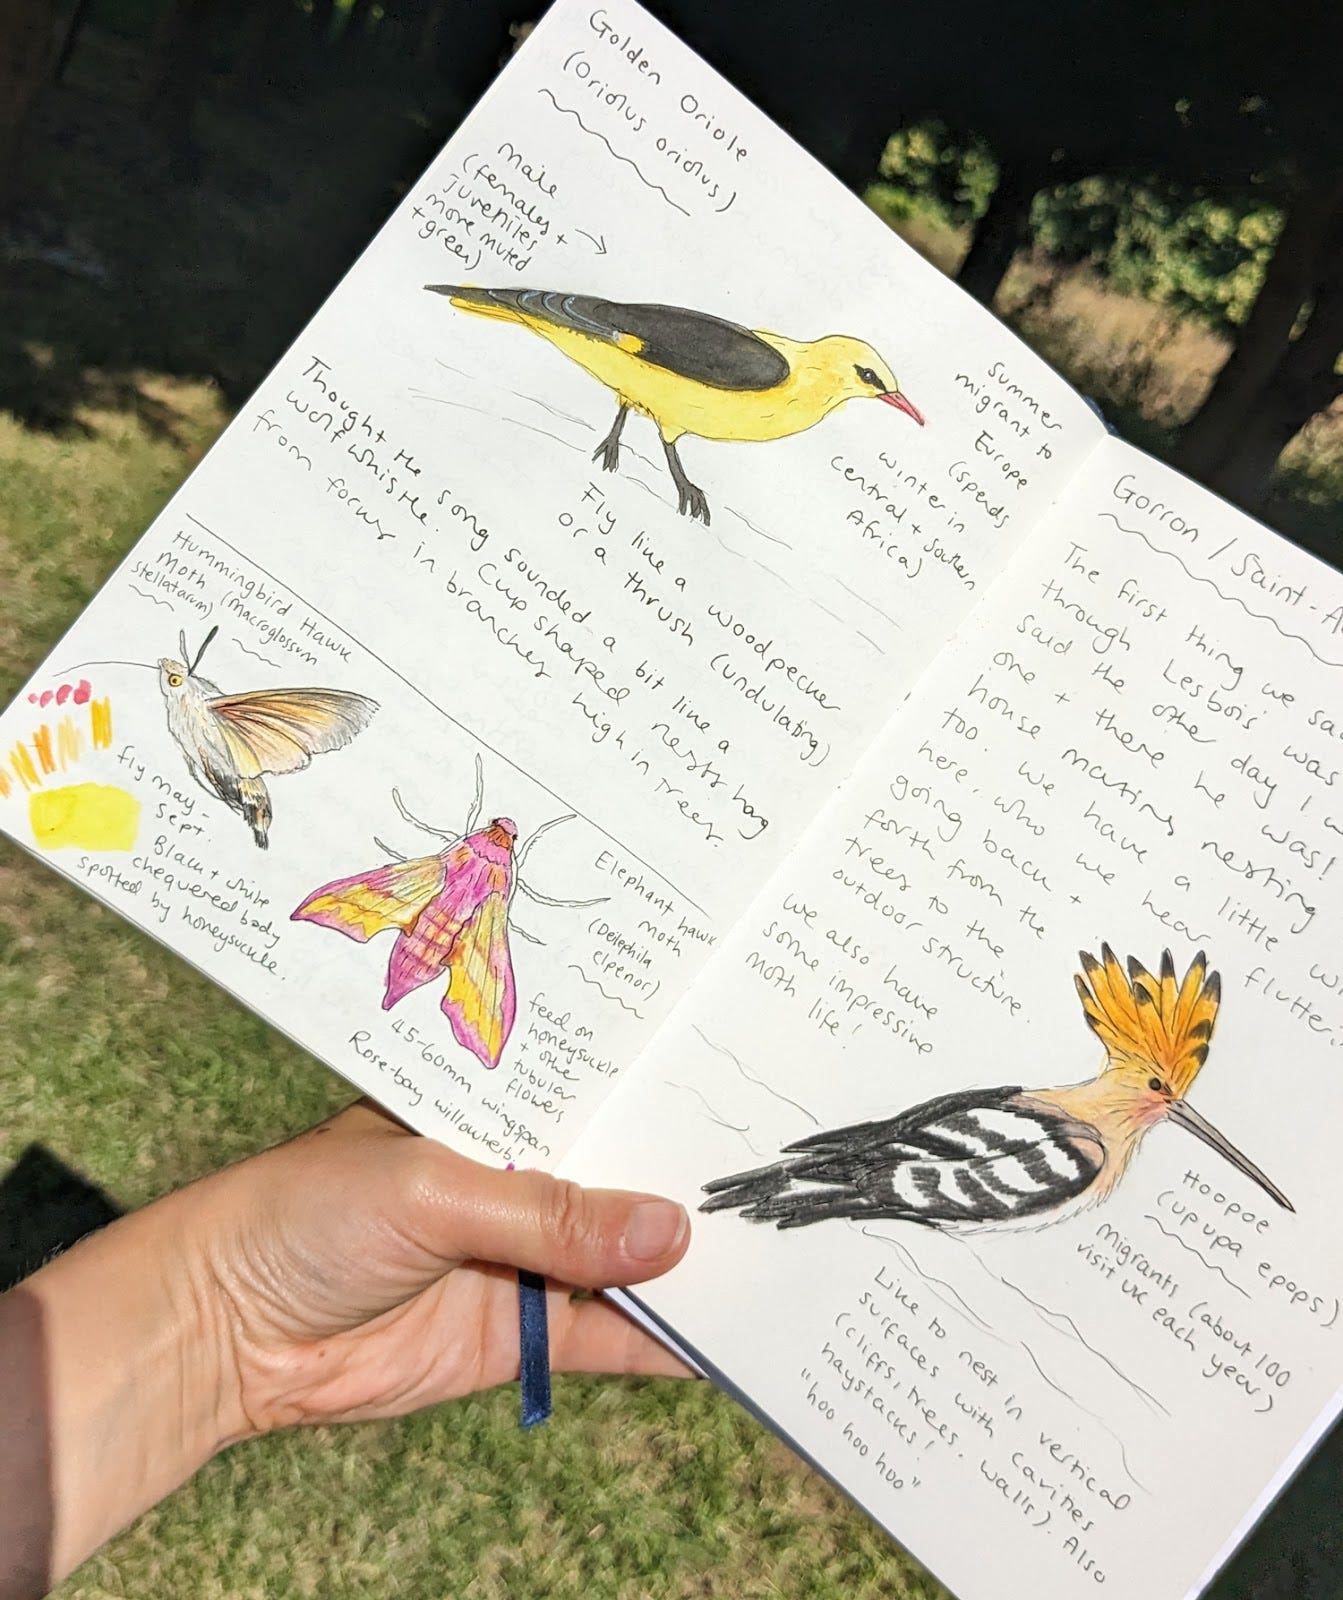 Golden Oriole
(Oriolus oriolus)
Male
(females +
juveniles
more muted
+ green)
Summer
migrant to
Europe
(spends
winter in
central + southern
Africa)
Fly like a woodpecker
or a thrush (undulating)
Thought the song sounded a bit like a
wolf whistle. Cup shaped nests hang
from forks in branches high in trees.
Hummingbird Hawk
Moth (Macroglossum
stellatarum)
fly may-
sept.
Black + white
chequered body
spotted by honeysuckle.
Elephant hawk
moth
(Deilephila
elpenor)
feed on
honeysuckle
+ other
tubular
flowers
45-60mm wingspan
Rose-bay willowherb!
Gorron / Saint-
The first thing we
through Lesbois was
said the other day I
one + there he was!
house martins nesting
too. We have a little
here, who we hear flutter
going back +
forth from the
trees to the
outdoor structure.
We also have
some impressive
moth life!
Hoopoe
(upupa epops)
Migrants (about 100
visit UK each year)
Like to nest in vertical
surfaces with cavities
(cliffs, trees, walls). Also
haystacks!
"hoo hoo hoo"